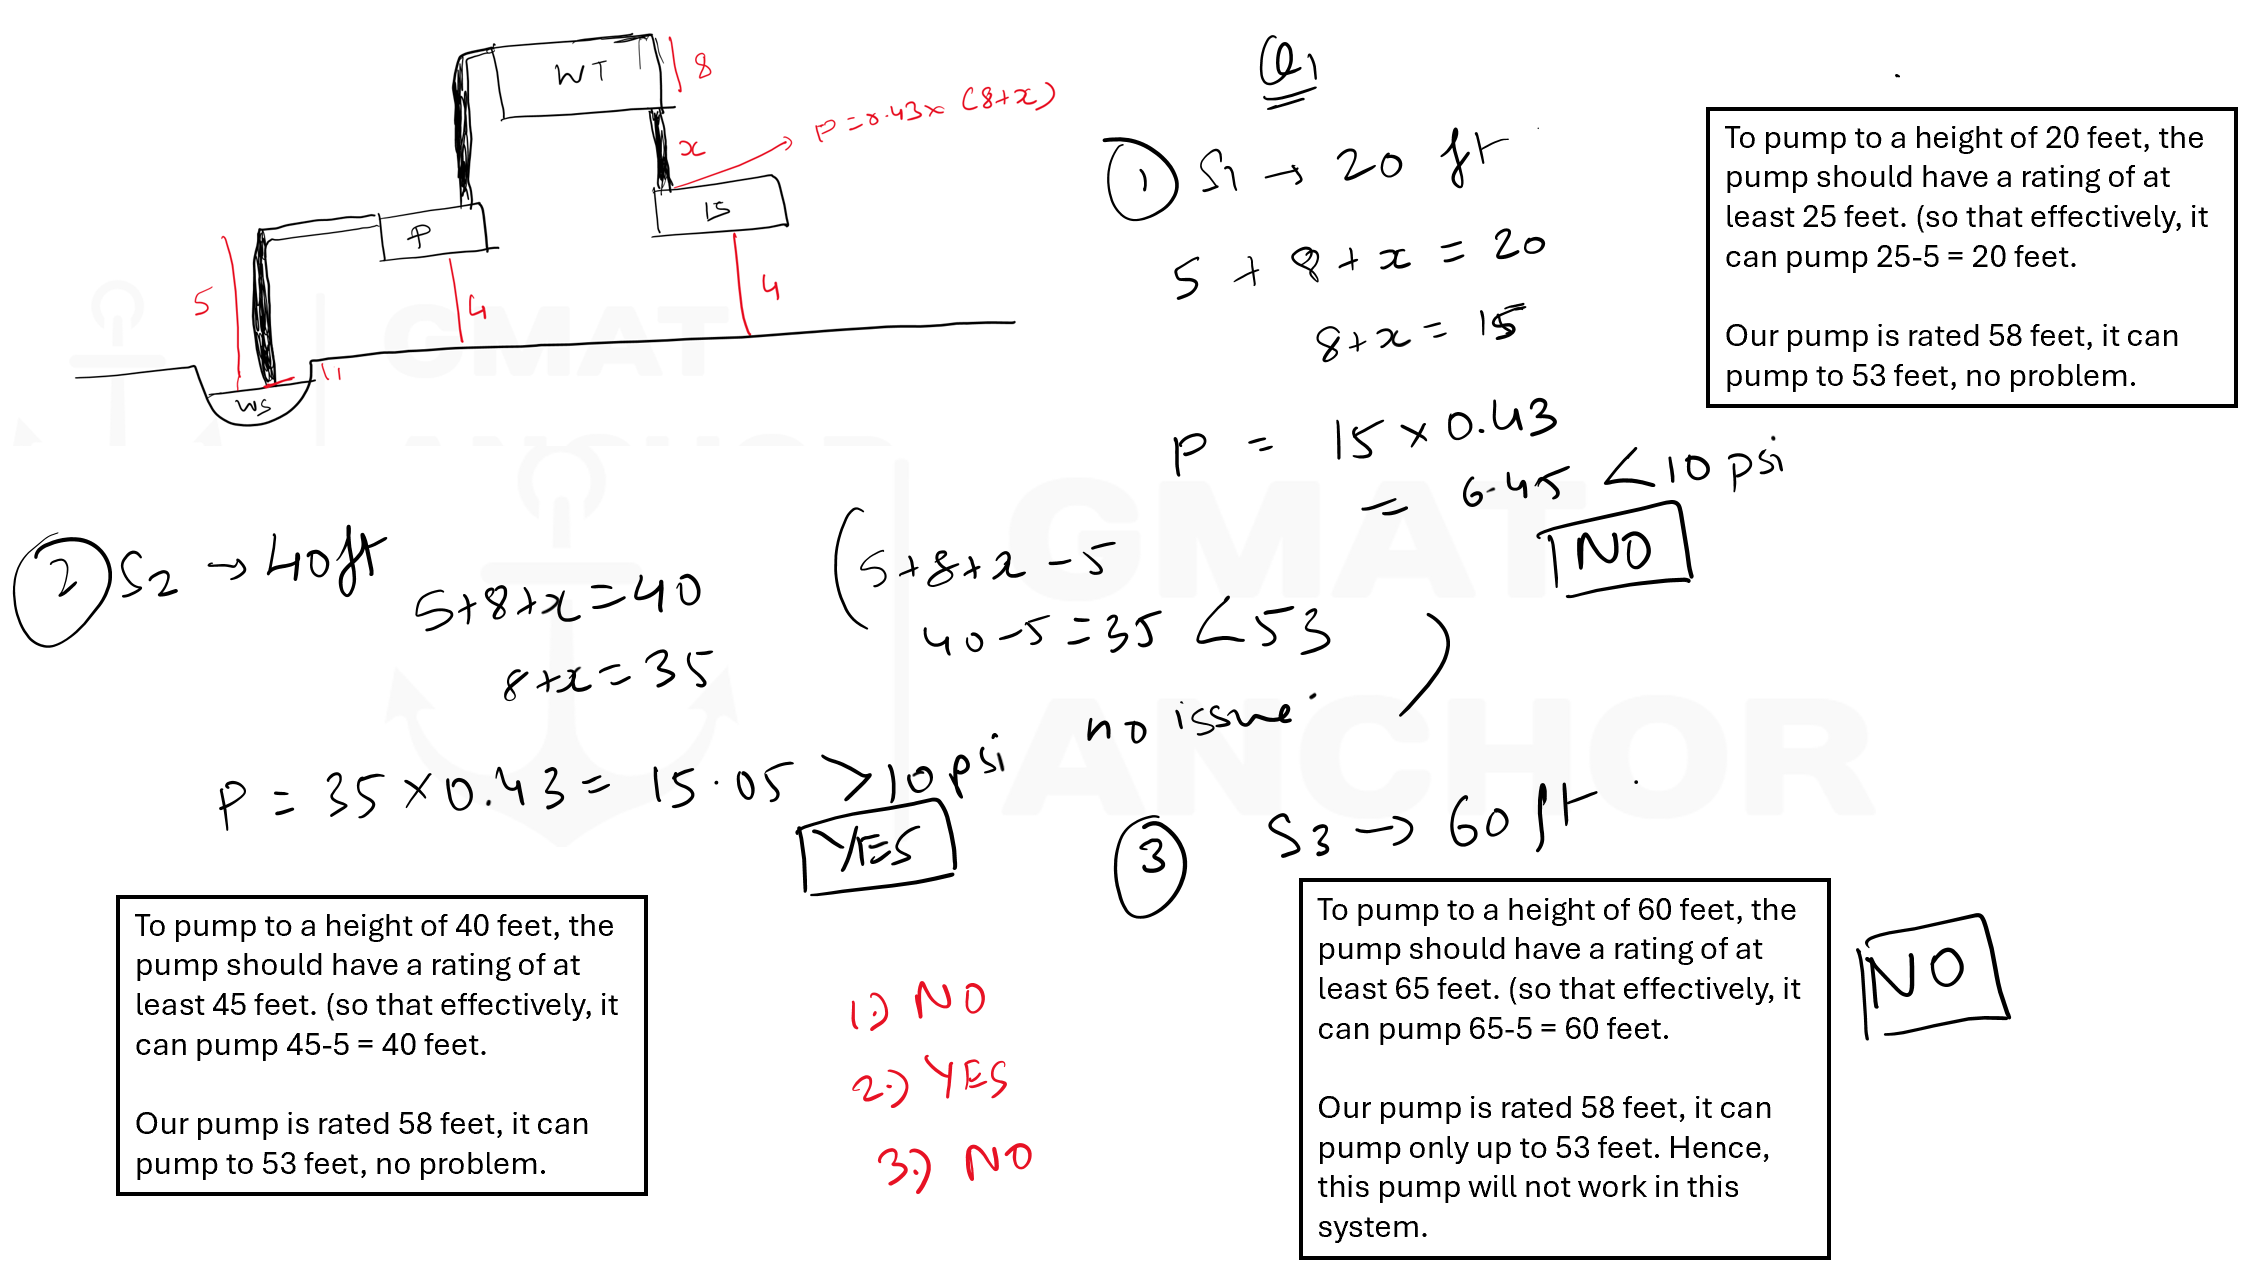 WT
8
P = 0.43 x (8+x)
x
P
IS
5
4
4
1
WS
Q1
1 S1 → 20 ft
5 + 8 + x = 20
8 + x = 15
P = 15 × 0.43
= 6.45 < 10 psi
NO
To pump to a height of 20 feet, the
pump should have a rating of at
least 25 feet. (so that effectively, it
can pump 25-5 = 20 feet.
Our pump is rated 58 feet, it can
pump to 53 feet, no problem.
2 S2 → 40ft
5+8+x = 40
8+x = 35
(5+8+x - 5
40-5 = 35 < 53
no issue. )
P = 35 × 0.43 = 15.05 > 10 psi
YES
To pump to a height of 40 feet, the
pump should have a rating of at
least 45 feet. (so that effectively, it
can pump 45-5 = 40 feet.
Our pump is rated 58 feet, it can
pump to 53 feet, no problem.
3 S3 → 60 ft
To pump to a height of 60 feet, the
pump should have a rating of at
least 65 feet. (so that effectively, it
can pump 65-5 = 60 feet.
Our pump is rated 58 feet, it can
pump only up to 53 feet. Hence,
this pump will not work in this
system.
NO
1.) NO
2.) YES
3.) NO
GMAT
ANCHOR
GMAT
ANCHOR